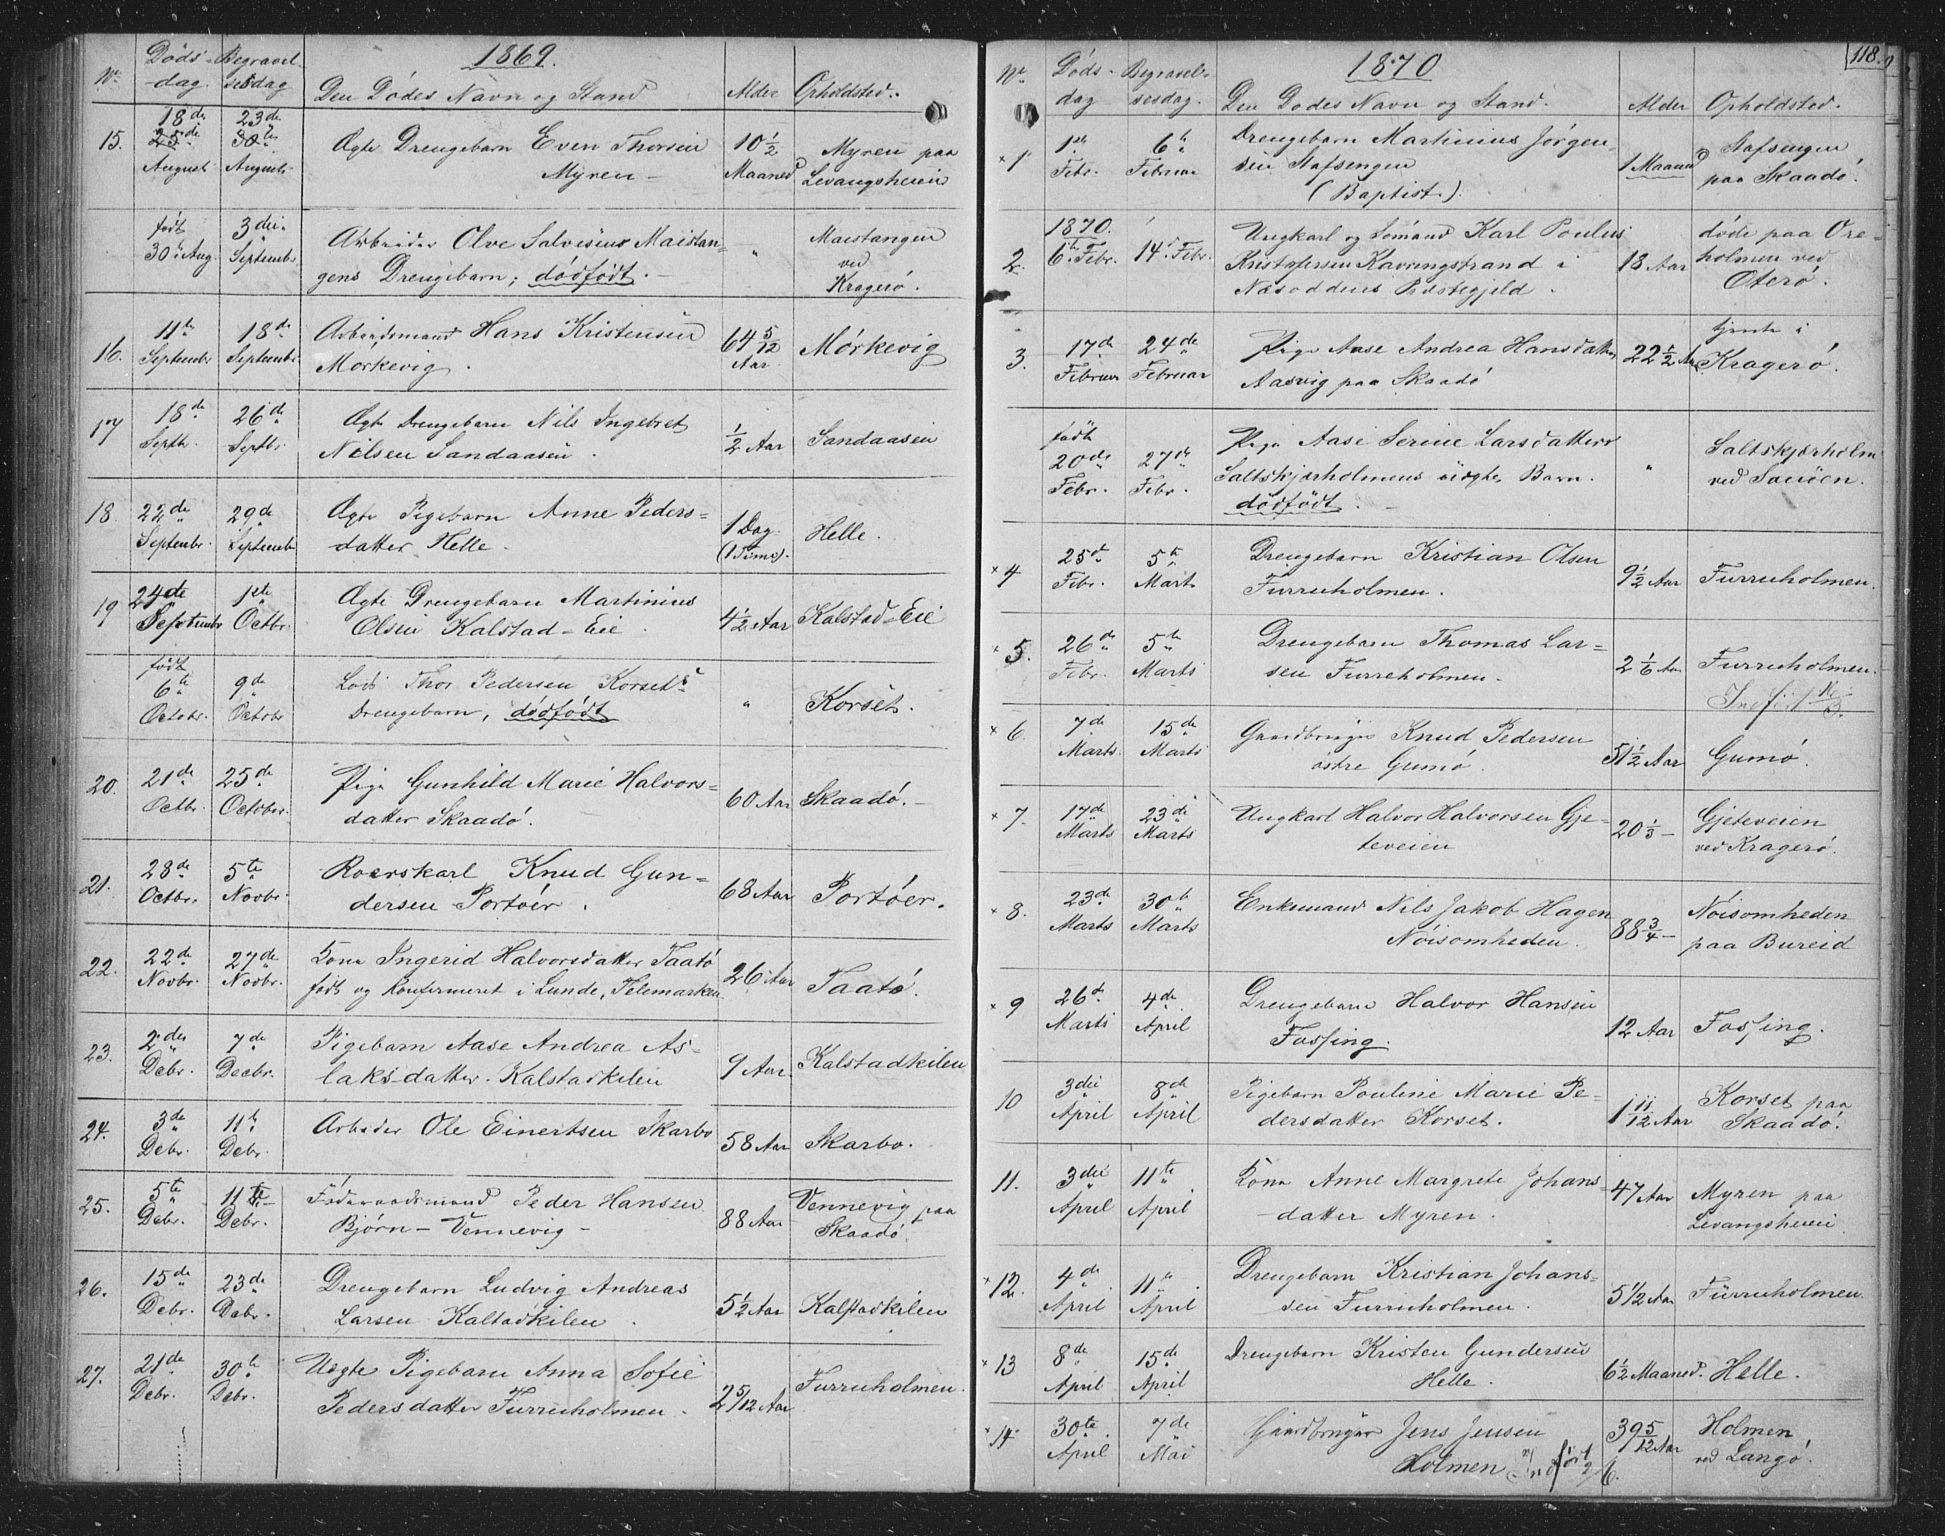 1869.
No. Döds-dag. Begravelsesdag Den Dödes Navn og Stand Alder Opholdsted.
15. 18de 23de
25de 30te Ægte Drengebarn Even Thorsen 10 1/2 Myren paa
August August Myren - Maaned Levangsheien
født 3die Arbeider Olve Salvesens Maistan- " Maistangen
30te Aug. Septembr. gens Drengebarn; dødfødt. - ved
Kragerö.
16. 11te 18de Arbeidsmand Hans Kristensen 64 5/12 Mörkevig
Septembr. Septembr. Mörkevig. Aar.
17 18de 26de Ægte Drengebarn Nils Ingebret 1/2 Aar Sandaasen
Septbr. Septbr. Nilsen Sandaasen.
18. 22de 29de Ægte Pigebarn Anne Peders- 1 Dag Helle.
Septembr. Septembr. datter Helle. (1 Time).
19 24de 1ste Ægte Drengebarn Martinius 4 1/2 Aar Kalstad-Eie
Septembr Octbr. Olsen Kalstad-Eie.
født
6te 9de Lods Thor Pedersen Korsets " Korset.
Octobr. Octobr Drengebarn, dödfödt
20. 21de 25de Pige Gunhild Marie Halvors- 60 Aar Skaadö. -
Octbr. October. datter Skaadö.
21. 28de 5te Roerskarl Knud Gun- 68 Aar Portöer.
Octbr. Novbr. dersen Portöer.
22. 22de 27de Kona Ingerid Halvorsdatter Taatö 26 Aar Taatö.
Novbr. Novbr. født og konfirmeret i Lunde, Telemarken
23. 2den 7de Pigebarn Aase Andrea As- 9 Aar. Kalstadkilen
Debr. Decbr. laksdatter. Kalstadkilen
24. 3de 11te Arbeider Ole Einertsen Skarbo 58 Aar Skarbo.
Debr. Debr.
25. 5te 11te Föderaadsmand Peder Hansen 88 Aar Vennevig paa
Debr. Debr. Bjørn - Vennevig - Skaadö.
26. 15de 23de Drengebarn Ludvig Andreas 5 1/2 Aar Kalstadkilen
Debr. Debr. Larsen Kaltadkilen.
27. 21de 30te Uægte Pigebarn Anna Sofie 2 5/12 Aar Furruholmen.
Debr. Debr. Pedersdatter Furruholmen.
118.
1870
No. Döds-dag Begravelsesdag. Den Dödes Navn og Stand. Alder Opholdsted.
x 1 1ste 6te Drengebarn Martinius Jörgen- 1 Maaned Stafsengen
Febr. Februar sen Stafsengen paa Skaadö.
(Baptist).
1870.
2. 6te Febr. 14. Febr. Ungkarl og Sömand Karl Poulus 18 Aar döde paa Öre-
Kristofersen Kavringstrand i holmen ved
Næsoddens Præstegjeld. Oterö.
3. 17de 24de Pige Aase Andrea Hansdatter 22 1/2 Aar tjente i
Februar Februar Aasvig paa Skaadö Kragerö.
født
20de 27de Pige Aase Serine Larsdatters " Saltskjærholm
Febr. Febr. Saltskjærholmens uægte Barn. ved Sauöen.
dödfödt. -
x 4 25de 5te Drengebarn Kristian Olsen 9 1/2 Aar Furruholmen.
Febr. Marts Furruholmen.
x 5. 26de 5te Drengebarn Thomas Lar- 2 1/6 Aar Furruholmen.
Febr. Marts sen Furreholmen.
x 6. 7de 15de Gaardbruger Knud Pedersen 51 1/2 Aar Gumö.
Marts. Marts östre Gumö.
x 7. 17de 23de Ungkarl Halvor Halvorsen Gje- 20 1/3 - Gjeteveien
Marts Marts teveien ved Kragerö.
x 8. 23de 30te Enkemand Nils Jakob Hagen 88 3/4 - Nöisomheden
Marts Marts Nöisomheden. paa Bureid
x 9 26de 4de Drengebarn Halvor Hansen 12 Aar Fossing.
Marts April Fossing.
10 3die 8de Pigebarn Pouline Marie Pe- 1 11/12 Aar Korset paa
April April dersdatter Korset. Skaadö.
11. 3die 11te Kona Anne Margrete Johans- 47 Aar Myren paa
April April datter Myren. Levangsheien
x 12. 4de 11te Drengebarn Kristian Johans- 5 1/12 Aar Furruholmen.
April April sen Furruholmen.
x 13 8de 15de Drengebarn Kristen Gundersen 6 1/2 Maaned. Helle.
April April Helle.
x 14 30te 7de Gaardbruger Jens Jensen 39 5/12 Aar Holmen
April Mai Holmen Indført ved Langö.